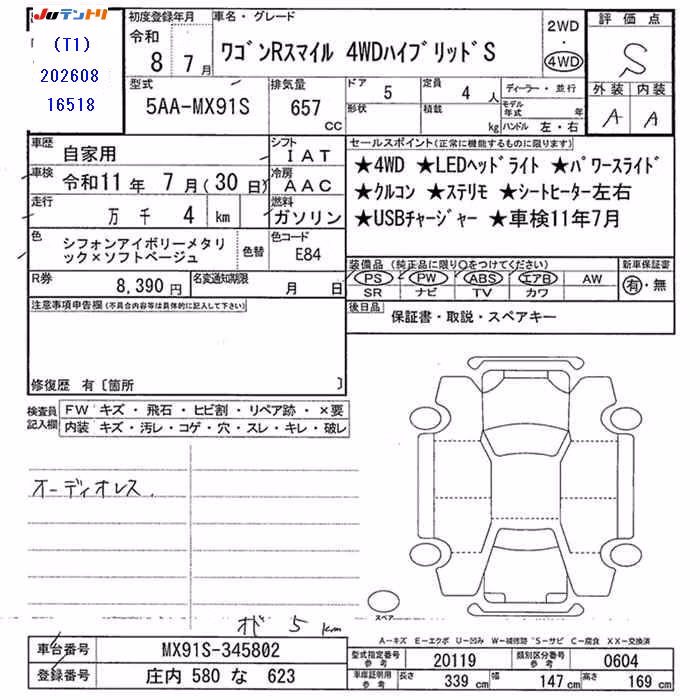 JUテントリ
(T1)
202608
16518
初度登録年月
令和
8 7月
車名・グレード
ワゴンRスマイル 4WDハイブリッドS
2WD
・
4WD
評価点
S
外装 内装
A A
型式
5AA-MX91S
排気量
657
cc
ドア
5
定員
4 人
形状
積載
kg
ディーラー・並行
モデル年式 年
ハンドル 左・右
車歴
自家用
シフト
IAT
車検
令和11年 7月(30日)
冷房
AAC
走行
万 千 4 km
燃料
ガソリン
色
シフォンアイボリーメタリ
ック×ソフトベージュ
色替
色コード
E84
R券
8,390円
名変通知期限
月 日
セールスポイント(正常に機能するものに限ります)
★4WD ★LEDヘッドライト ★パワースライド
★クルコン ★ステリモ ★シートヒーター左右
★USBチャージャー ★車検11年7月
装備品(純正品に限り○をつけてください)
PS PW ABS エアB AW
SR ナビ TV カワ
新車保証書
有・無
後日品
保証書・取説・スペアキー
注意事項申告欄(不具合内容等は具体的に記入して下さい)
修復歴 有〔箇所 〕
検査員
記入欄
FW キズ・飛石・ヒビ割・リペア跡・×要
内装 キズ・汚レ・コゲ・穴・スレ・キレ・破レ
オーディオレス
スペア
オド 5 km
A-キズ E-エクボ U-凹み W-補修跡 S-サビ C-腐食 XX-交換済
車台番号
MX91S-345802
登録番号
庄内 580 な 623
型式指定番号
参考
20119
類別区分番号
参考
0604
車庫証明用
参考
長さ 339 cm 幅 147 cm 高さ 169 cm